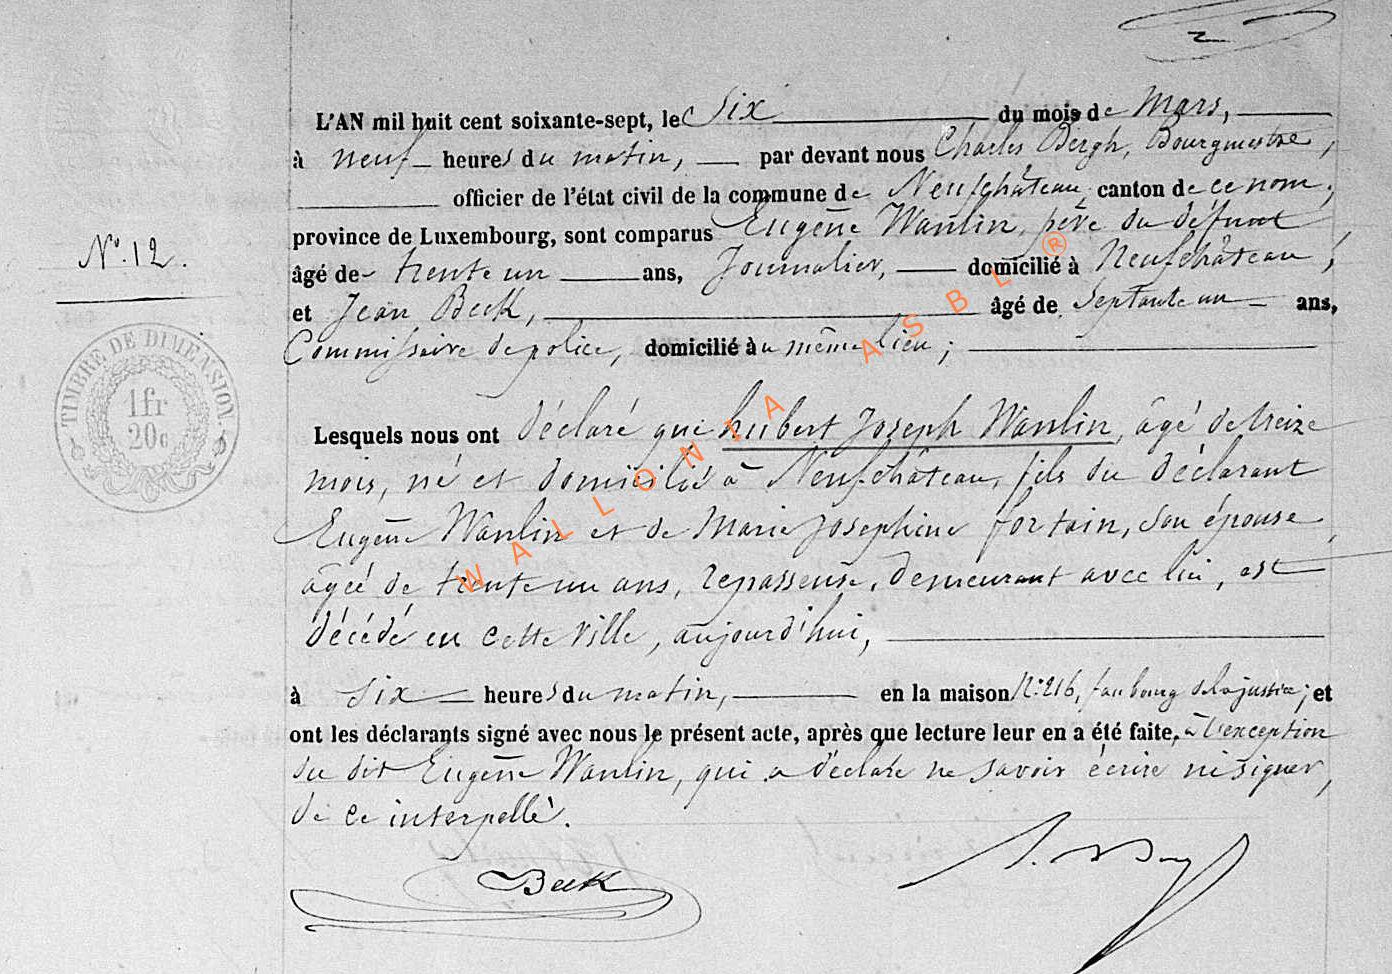 L'AN mil huit cent soixante-sept, le Six du mois de Mars,
à neuf heures du matin, par devant nous Charles Bergh, Bourgmestre,
officier de l'état civil de la commune de Neufchâteau, canton de ce nom,
province de Luxembourg, sont comparus Eugène Wanlin, père du défunt,
âgé de trente un ans, Journalier, domicilié à Neufchâteau,
et Jean Beck, âgé de Septante un ans,
Commissaire de police, domicilié au même lieu;
N°. 12.
TIMBRE DE DIMENSION.
1fr
20c
Lesquels nous ont déclaré que hubert Joseph Wanlin, âgé de treize
mois, né et domicilié à Neufchâteau, fils du déclarant
Eugène Wanlin et de Marie Josephine fortain, son épouse,
âgée de trente un ans, repasseuse, demeurant avec lui, est
décédé en cette ville, aujourd'hui,
à six heures du matin, en la maison N°. 216, faubourg de la justice; et
ont les déclarants signé avec nous le présent acte, après que lecture leur en a été faite, à l'exception
du dit Eugène Wanlin, qui a déclaré ne savoir écrire ni signer,
de ce interpellé.
Beck
WALLONIA ASBL ®